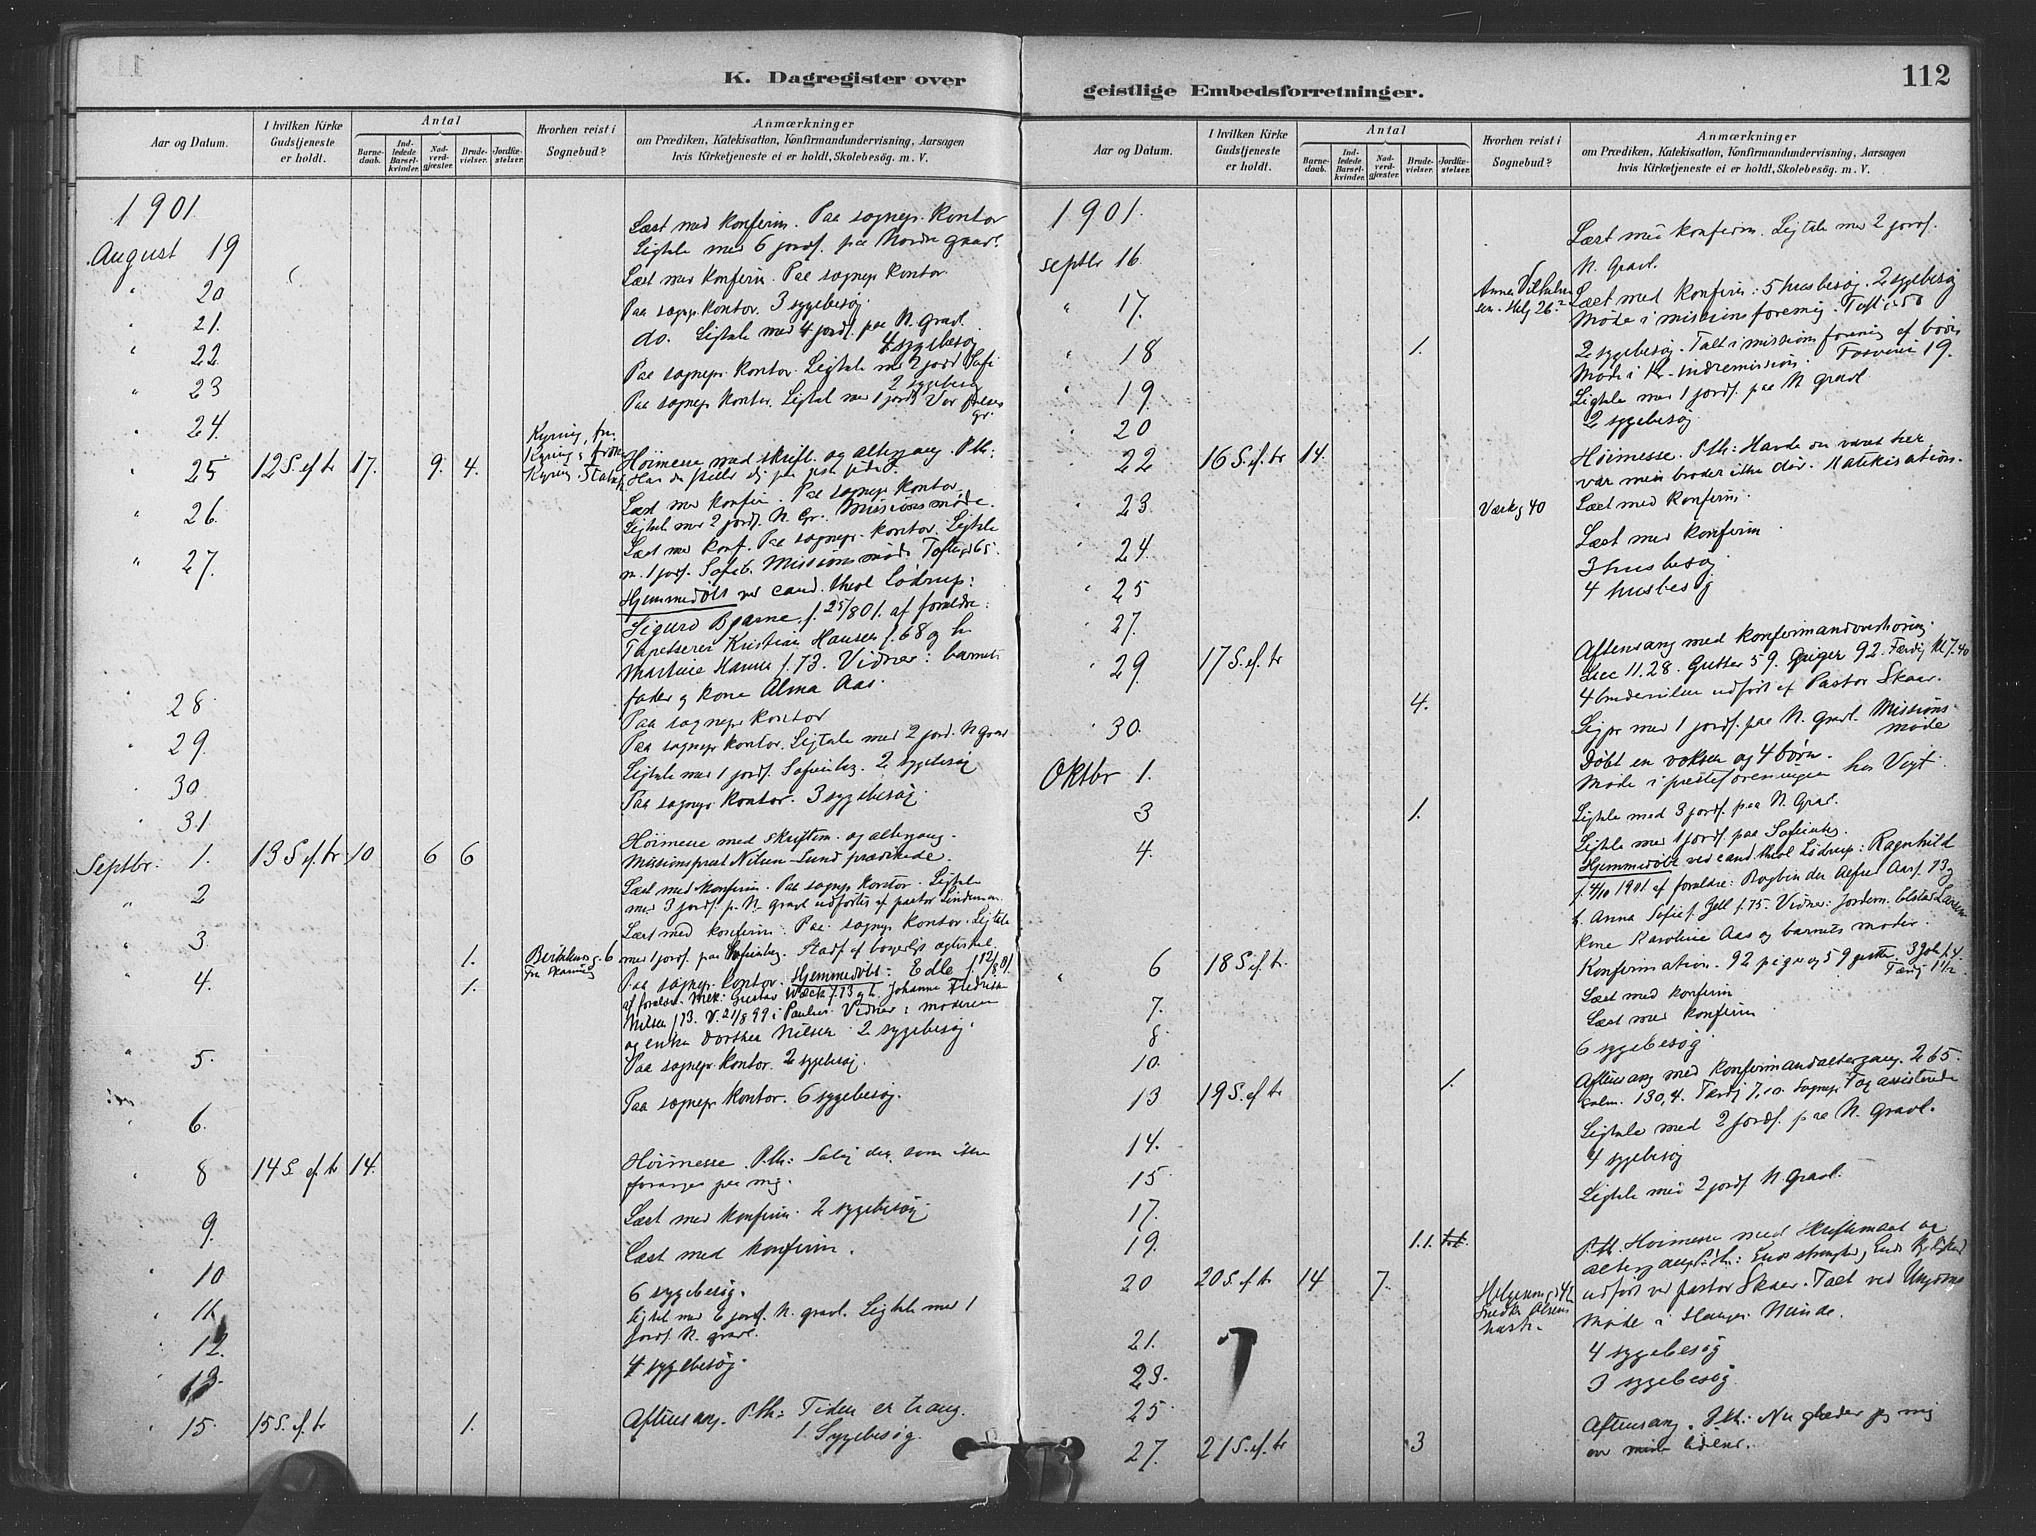 K. Dagregister over
Aar og Datum.
I hvilken Kirke Gudstjeneste er holdt.
Antal
Barnedaab.
Indledede Barselkvinder.
Nadverdgjester.
Brudevielser.
Jordfæstelser.
Hvorhen reist i Sognebud?
Anmærkninger
om Prædiken, Katekisation, Konfirmandundervisning, Aarsagen
hvis Kirketjeneste ei er holdt, Skolebesög. m. V.
1901
Læst med konfirm. Paa sognepr. kontor
August 19 Ligtale med 6 jordf. paa Nordre gravl.
" 20 Læst med konfirm. Paa sognepr kontor.
" 21. Paa sognepr. kontor. 3 sygebesøg.
" 22 do. Ligtale med 4 jordf. paa N. gravl.
4 sygebesøg
" 23 Paa sognepr. kontor. Ligtale med 2 jord Sofi
2 sygebesøg
" 24. Paa sognepr kontor. Ligtale med 1 jordf. Vor frelsers
gr.
" 25 12 S. ef. tr 17. 9. 4. Høimesse med skriftm. og altergang. P. th:
" 26. Læst med konfirm. Paa sognepr kontor.
Ligtale med 2 jordf. N. Gr. Missionsmøde.
" 27. Læst med konf. Paa sognepr. kontor. Ligtale
m. 1 jordf. Sofieb. Missionsmøde Toftesgd 65.
Hjemmedøbt ved cand. theol Lödrup:
Sigurd Bjarne f. 25/8 01. af forældre:
Tapetserer Kristian Hansen f. 68 og h.
Martine Hansen f. 73. Vidner: barnets
fader og kone Alma Aas.
" 28 Paa sognepr kontor
" 29. Paa sognepr kontor. Ligtale med 2 jord. N gravl
" 30 Ligtale med 1 jordf. Sofienbg. 2 sygebesøg
" 31 Paa sognepr kontor. 3 sygebesøg.
Septbr. 1. 13 S ef. tr 10 6 6 Høimesse med skriftem. og altergang.
Missionsprest Nilsen-Lund prædikede.
" 2 Læst med konfirm. Paa sognepr kontor. Ligtale
med 3 jordf. p. N. gravl udførtes af pastor Lindeman.
" 3. 1. Læst med konfirm. Paa sognepr kontor. Ligtale
med 1 jordf. paa Sofienbg. Stadf. af borgerligt ægteskab.
" 4. 1. Paa sognepr. kontor. Hjemmedöbt: Edle f. 12/8 01.
af forældre. Mek: Gustav Wæck f. 73 og h. Johanne Fredrikke
Nilsen f 73. V. 21/8 99 i Paulus. Vidner: moderen
og enke Dorthea Nilsen. 2 sygebesøg.
" 5. Paa sognepr. kontor. 2 sygebesøg.
" 6. Paa sognepr kontor. 6 sygebesøg.
" 8 14 S. ef. tr 14. Høimesse. P. th: Salig den, som ikke
forarges paa mig.
9. Læst med konfirm. 2 sygebesøg.
" 10 Læst med konfirm.
" 11. 6 sygebesøg.
" 12. Ligtal med 2 jordf. N. gravl. Ligtale med 1
jordf. N. gravl.
" 13. 4 sygebesøg.
" 15. 15 S. ef. tr 1. Aftensang. P. th: Tiden er trang.
1 Sygebesøg.
geistlige Embedsforretninger.
112
Aar og Datum.
I hvilken Kirke Gudstjeneste er holdt.
Antal
Barnedaab.
Indledede Barselkvinder.
Nadverdgjester.
Brudevielser.
Jordfæstelser.
Hvorhen reist i Sognebud?
Anmærkninger
om Prædiken, Katekisation, Konfirmandundervisning, Aarsagen
hvis Kirketjeneste ei er holdt, Skolebesög. m. V.
1901.
Septbr 16. Læst med konfirm. Ligtale med 2 jordf.
N. Gravl.
" 17. Læst med konfirm: 5 husbesøg. 2 sygebesøg
Møde i missionsforening.
" 18 1. 2 sygebesøg. Talt i missionsforening
Møde i Kr. indremission.
" 19. Ligtale med 1 jordf. paa N gravl
20 2 sygebesøg
" 22 16 S. ef. tr 14. Høimesse. P. th: Havde du været her,
var min broder ikke død. Katekisation.
" 23 Læst med konfirm.
" 24. Læst med konfirm.
" 25 3 husbesøg
" 27. 4 husbesøg
" 29. 17 S. ef. tr 4. Aftensang med konfirmandoverhøring.
Luc 11.28. Gutter 59. Piger 92. Færdig kl 7.40
4 brudevielser udført af Pastor Skaar.
" 30. Ligpr med 1 jordf. paa N. gravl. Missions-
møde
Oktbr 1. Døbt en voksen og 4 børn.
Møde i presteforeningen hos Vogt.
3 1. Ligtale med 3 jordf. paa N. Gravl.
4. Ligtale med 1 jordf. paa Sofienbg.
Hjemmedøbt ved cand. theol Lödrup: Ragnhild
f. 4/10 1901 af forældre: Bogbinder Alfred Aas f. 73 og
h. Anna Sofie f. Gell f. 75. Vidner: Jordem.
kone Karoline Aas og barnets moder.
" 6 18 S ef. tr. Konfirmation. 92 piger og 59 gutter.
7. Læst med konfirm
8. Læst med konfirm
10. 6 sygebesøg.
13 19 S. ef tr 1. Aftensang med konfirmandaltergang. 265.
Salm. 130, 4. Færdig 7,10.
14. Ligtale med 2 jordf. paa N. gravl.
15. 4 sygebesøg
17. Ligtale med 2 jordf. N. gravl.
19. 1.1.
20 20 S. ef tr 14 7. Høimesse med Skriftemaal og
altergang.
udført ved pastor Skaar. Talt ved Ungdoms
Møde i Hauges Minde.
21. 4 sygebesøg
23. 3 sygebesøg
25
27. 21 S. ef. tr 3 Aftensang. P. th: Nu glæder jeg mig
over mine lidelser.